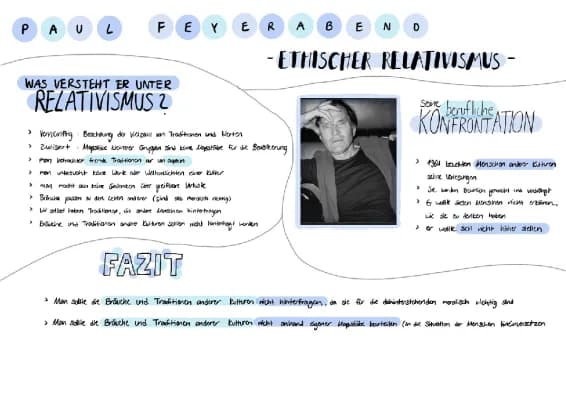 PAUL FEYERABEND
- ETHISCHER RELATIVISMUS -
WAS VERSTEHT ER UNTER
RELATIVISMUS?
> Vernünftig: Beachtung der Vielzahl von Traditionen und Werten
> Zivilisiert: Maßstäbe kleiner Gruppen sind keine Maßstäbe für die Bevölkerung
> man betrachtet fremde Traditionen
> man untersucht keine Werte der Weltansichten einer Kultur
> man macht sich keine Gedanken über greifbare Vorteile
> Bräuche passen zu den Leben anderer (sind also moralisch richtig)
> Wir selbst haben Traditionen, die andere Menschen hinterfragen
> Bräuche und Traditionen anderer Kulturen sollen nicht hinterfragt werden
Seine berufliche
KONFRONTATION
> 1964 besuchten Menschen anderer Kulturen
seine Vorlesungen
> Sie wurden
> Er wollte diesen Menschen nicht erklären,
wie sie zu denken haben
> er wollte sich nicht höher stellen
FAZIT
> Man sollte die Bräuche und Traditionen anderer Kulturen nicht hinterfragen, da sie für die dahinterstehenden moralisch richtig sind
> Man sollte die Bräuche und Traditionen anderer Kulturen nicht anhand eigener Maßstäbe beurteilen (in die Situation der Menschen hineinversetzen